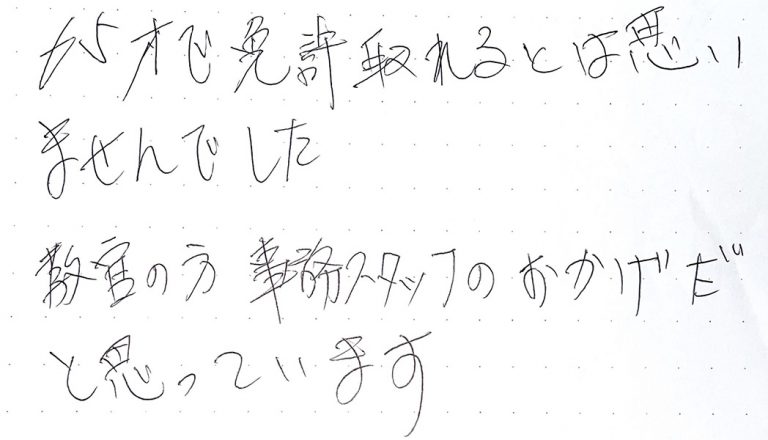 65才で免許取れるとは思い
ませんでした
教官の方 事務スタッフのおかげだ
と思っています